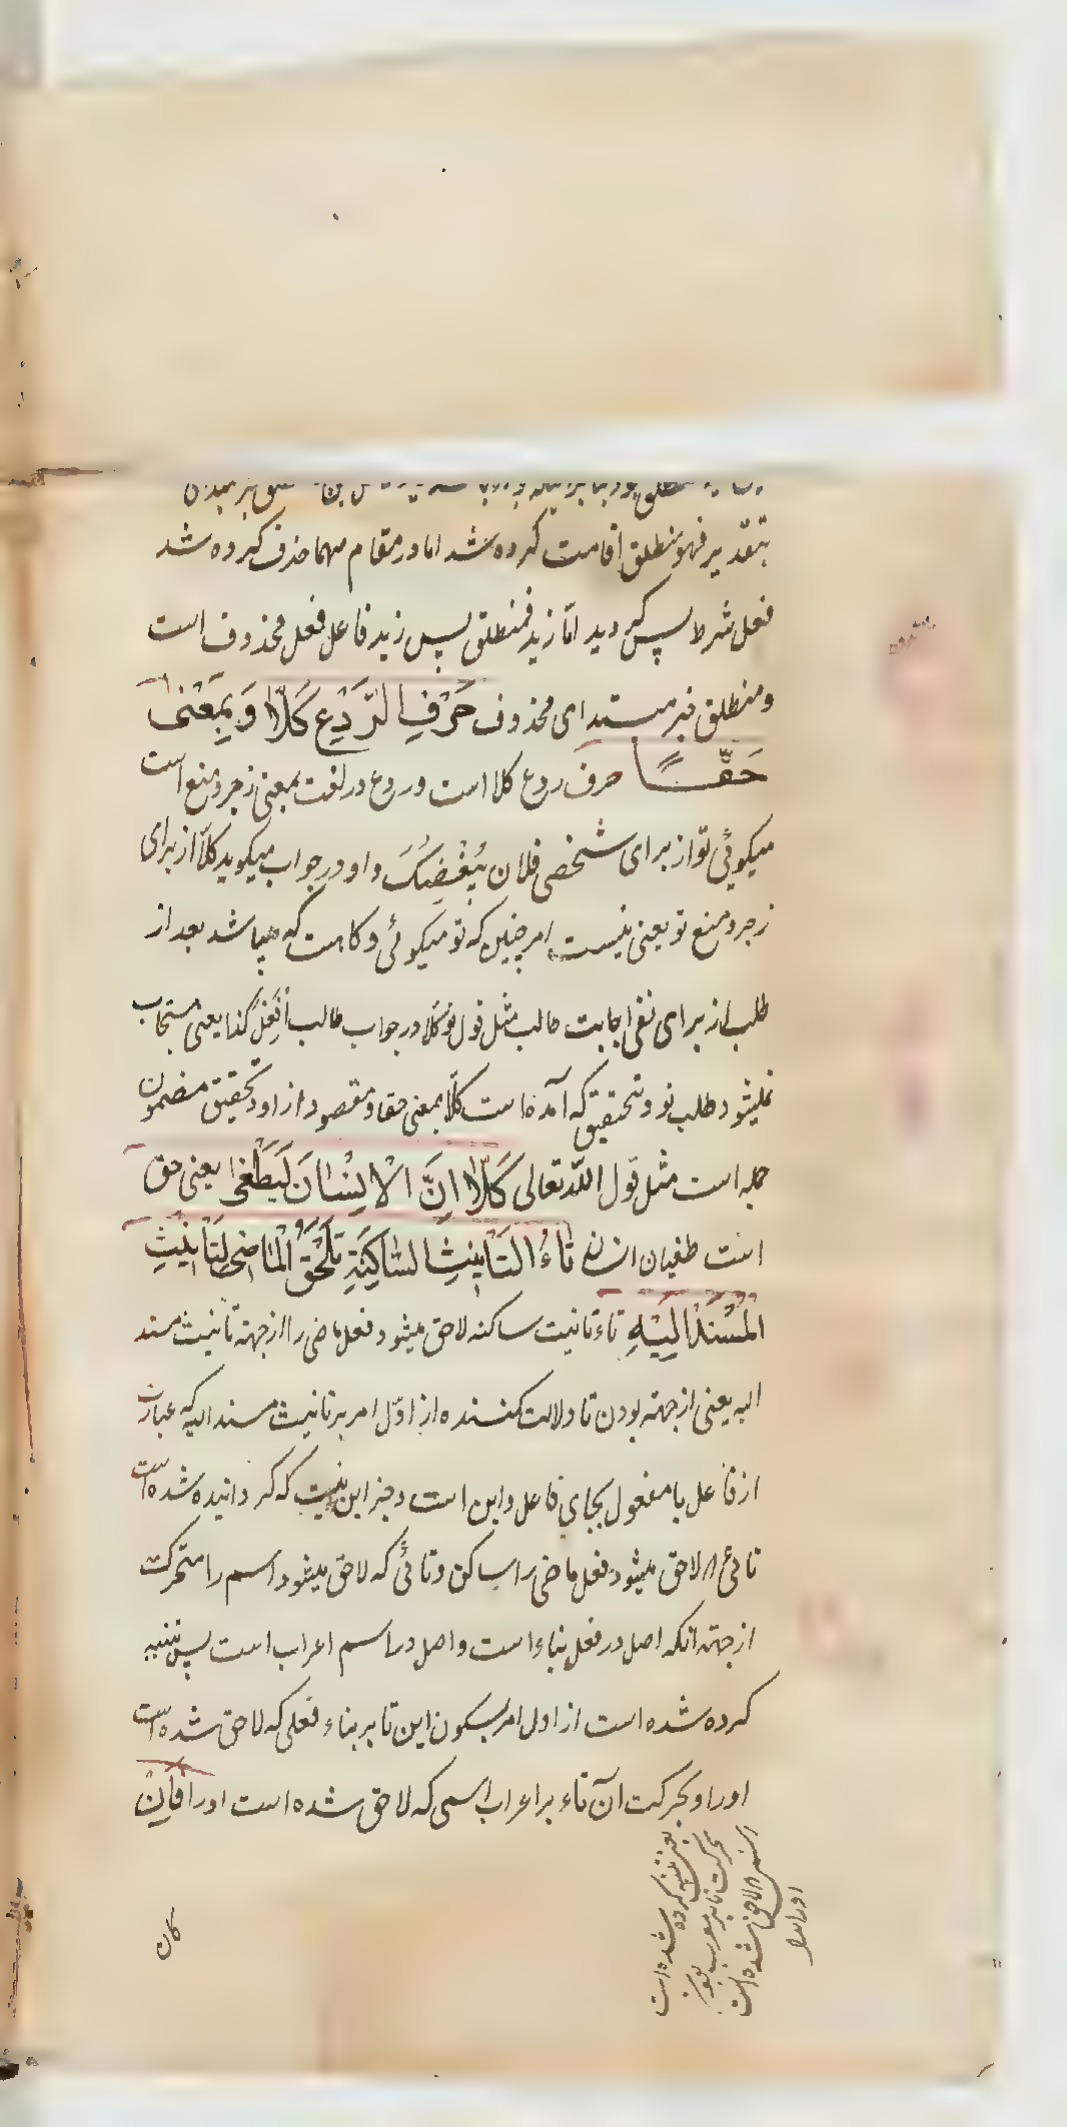 بتقدیر فهو منطلق اقامت کرده شد اما در مقام مهما حذف کرده شد
فعل شرط پس کردید امّا زید فمنطلق پس زید فاعل فعل محذوف است
و منطلق خبر مبتدای محذوف حَرْفِ الرَّدْعِ كَلّا وَ بِمَعْنىٰ
حَقًّا حرف ردع کلا است و ردع در لغت بمعنی زجر و منع است
میکوئی تو از برای شخصی فلان یُبْغِضُکَ و او در جواب میکوید کلّا از برای
زجر و منع تو یعنی نیست امر چنین که تو میکوئی و کاهست که میباشد بعد از
طلب از برای نفی اجابت طالب مثل قول تو کلا در جواب طالب اِفْعَلْ کذا یعنی مستجاب
نمیشود طلب تو و بتحقیق که آمده است کلّا بمعنی حقا و مقصود از او تحقیق مضمون
جمله است مثل قول اللّه تعالی كَلّا اِنَّ الْاِنْسانَ لَيَطْغىٰ یعنی حق
است طغیان انسان تاءُ التَّأنيثِ السّاكِنَةِ تَلْحَقُ الْماضِىَ لِتَأنيثِ
الْمُسْنَدِ اِلَيْهِ تاء تانیث ساکنه لاحق میشود فعل ماضی را از جهة تانیث مسند
الیه یعنی از جهة بودن تا دلالت کننده از اوّل امر بر تانیث مسند الیه که عبارت
از فاعل یا مفعول بجای فاعل و این است و جز این نیست که کردانیده شده است
تائی که لاحق میشود فعل ماضی را ساکن و تائی که لاحق میشود اسم را متحرک
از جهة انکه اصل در فعل بناء است و اصل در اسم اعراب است پس تنبیه
کرده شده است از اول امر بسکون این تا بر بناء فعلی که لاحق شده است
او را و بحرکت آن تاء بر اعراب اسمی که لاحق شده است او را فَاِنْ
یعنی تنبیه کرده شده است
بحرکت تا بر معرب بودن
اسمی که لاحق شده است
او را
کان